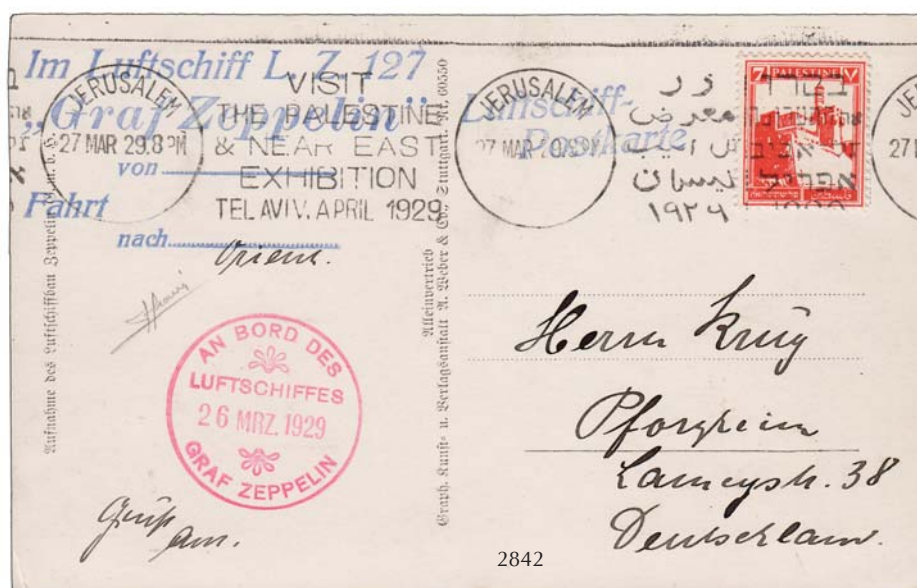 Im Luftschiff L. Z. 127
„Graf Zeppelin“
von
Fahrt
nach
Orient.
JERUSALEM
27 MAR 29.8 PM
VISIT
THE PALESTINE
& NEAR EAST
EXHIBITION
TEL AVIV. APRIL 1929
Luftschiff-
Postkarte
JERUSALEM
27 MAR 29.8 PM
PALESTINE
7
زر
معرض
تل ابيب
نيسان
١٩٢٩
בקרו
אפריל
Aufnahme des Luftschiffbau Zeppelin G. m. b. H.
Alleinvertrieb
Graph. Kunst- u. Verlagsanstalt A. Weber & Co., Stuttgart. Nr. 60550
AN BORD DES
LUFTSCHIFFES
26 MRZ. 1929
GRAF ZEPPELIN
Gruß
Herrn Krug
Pforzheim
Lameystr. 38
Deutschland.
2842